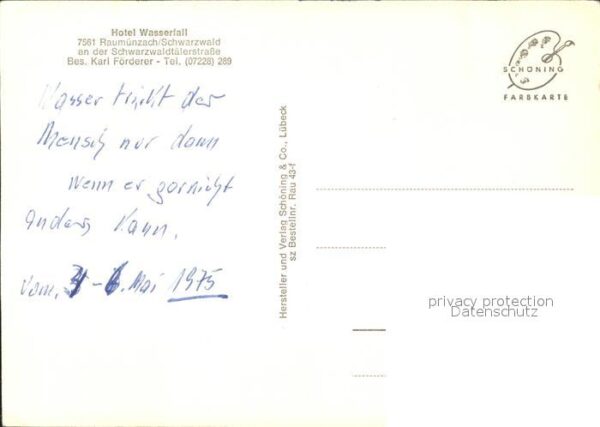 Hotel Wasserfall
7561 Raumünzach/Schwarzwald
an der Schwarzwaldtälerstraße
Bes. Karl Förderer - Tel. (07228) 289
SCHÖNING
FARBKARTE
Wasser trinkt der
Mensch nur dann
wenn er garnicht
anders kann.
vom, 3 - 6. Mai 1975
Hersteller und Verlag Schöning & Co., Lübeck
sz Bestellnr. Rau 43-f
privacy protection
Datenschutz